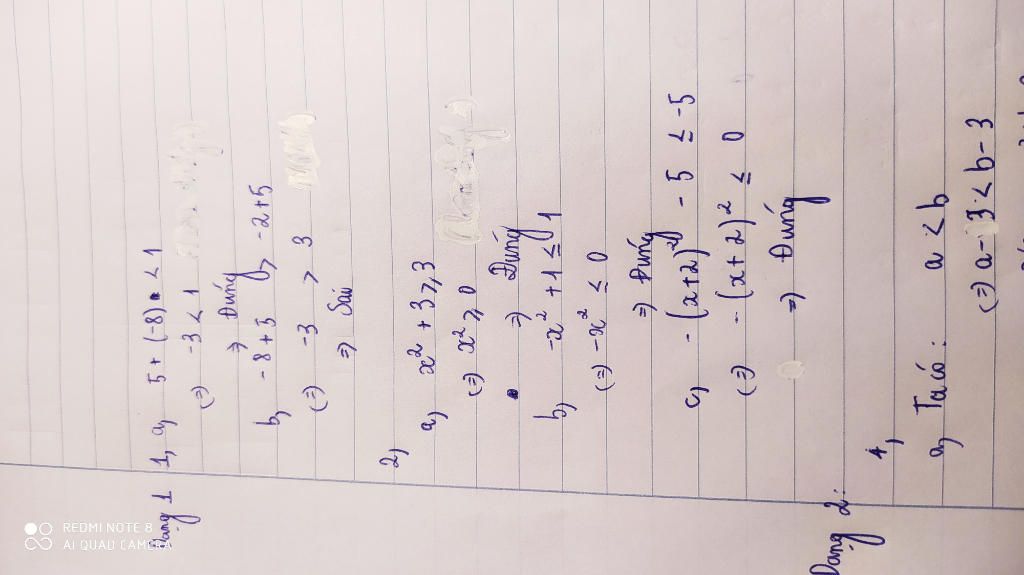 Dạng 1 1, a, 5 + (-8) < 1
(=) -3 < 1
=) Đúng
b, -8 + 5 > -2+5
(=) -3 > 3
=) Sai
2,
a, x² + 3 ≥ 3
(=) x² ≥ 0
=) Đúng
b, -x² + 1 ≤ 1
(=) -x² ≤ 0
=) Đúng
c, -(x+2)² - 5 ≤ -5
(=) -(x+2)² ≤ 0
=) Đúng
Dạng 2:
4,
a, Ta có: a < b
(=) a - 3 < b - 3
REDMI NOTE 8
AI QUAD CAMERA